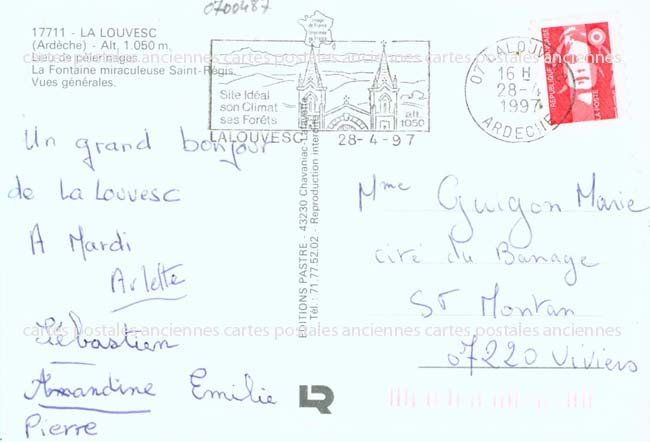 0700487
17711 - LA LOUVESC
(Ardèche) - Alt. 1.050 m.
Lieu de pèlerinages.
La Fontaine miraculeuse Saint-Régis.
Vues générales.
Image de France
Imprimée en France
Site Idéal
son Climat
ses Forêts
alt. 1050
LALOUVESC 28-4-97
07 LALOUVESC
16 H
28-4
1997
ARDECHE
REPUBLIQUE FRANÇAISE
LA POSTE
cartes postales anciennes cartes postales anciennes cartes postales anciennes
Un grand bonjour
de La Louvesc
A Mardi
Arlette
Sébastien
Amandine Emilie
Pierre
EDITIONS PASTRE - 43230 Chavaniac-Lafayette
Tél. : 71 77.52.02 - Reproduction interdite
Mme Guigon Marie
cité du Banage
St Montan
07220 Viviers
cartes postales anciennes cartes postales anciennes cartes postales anciennes
LR